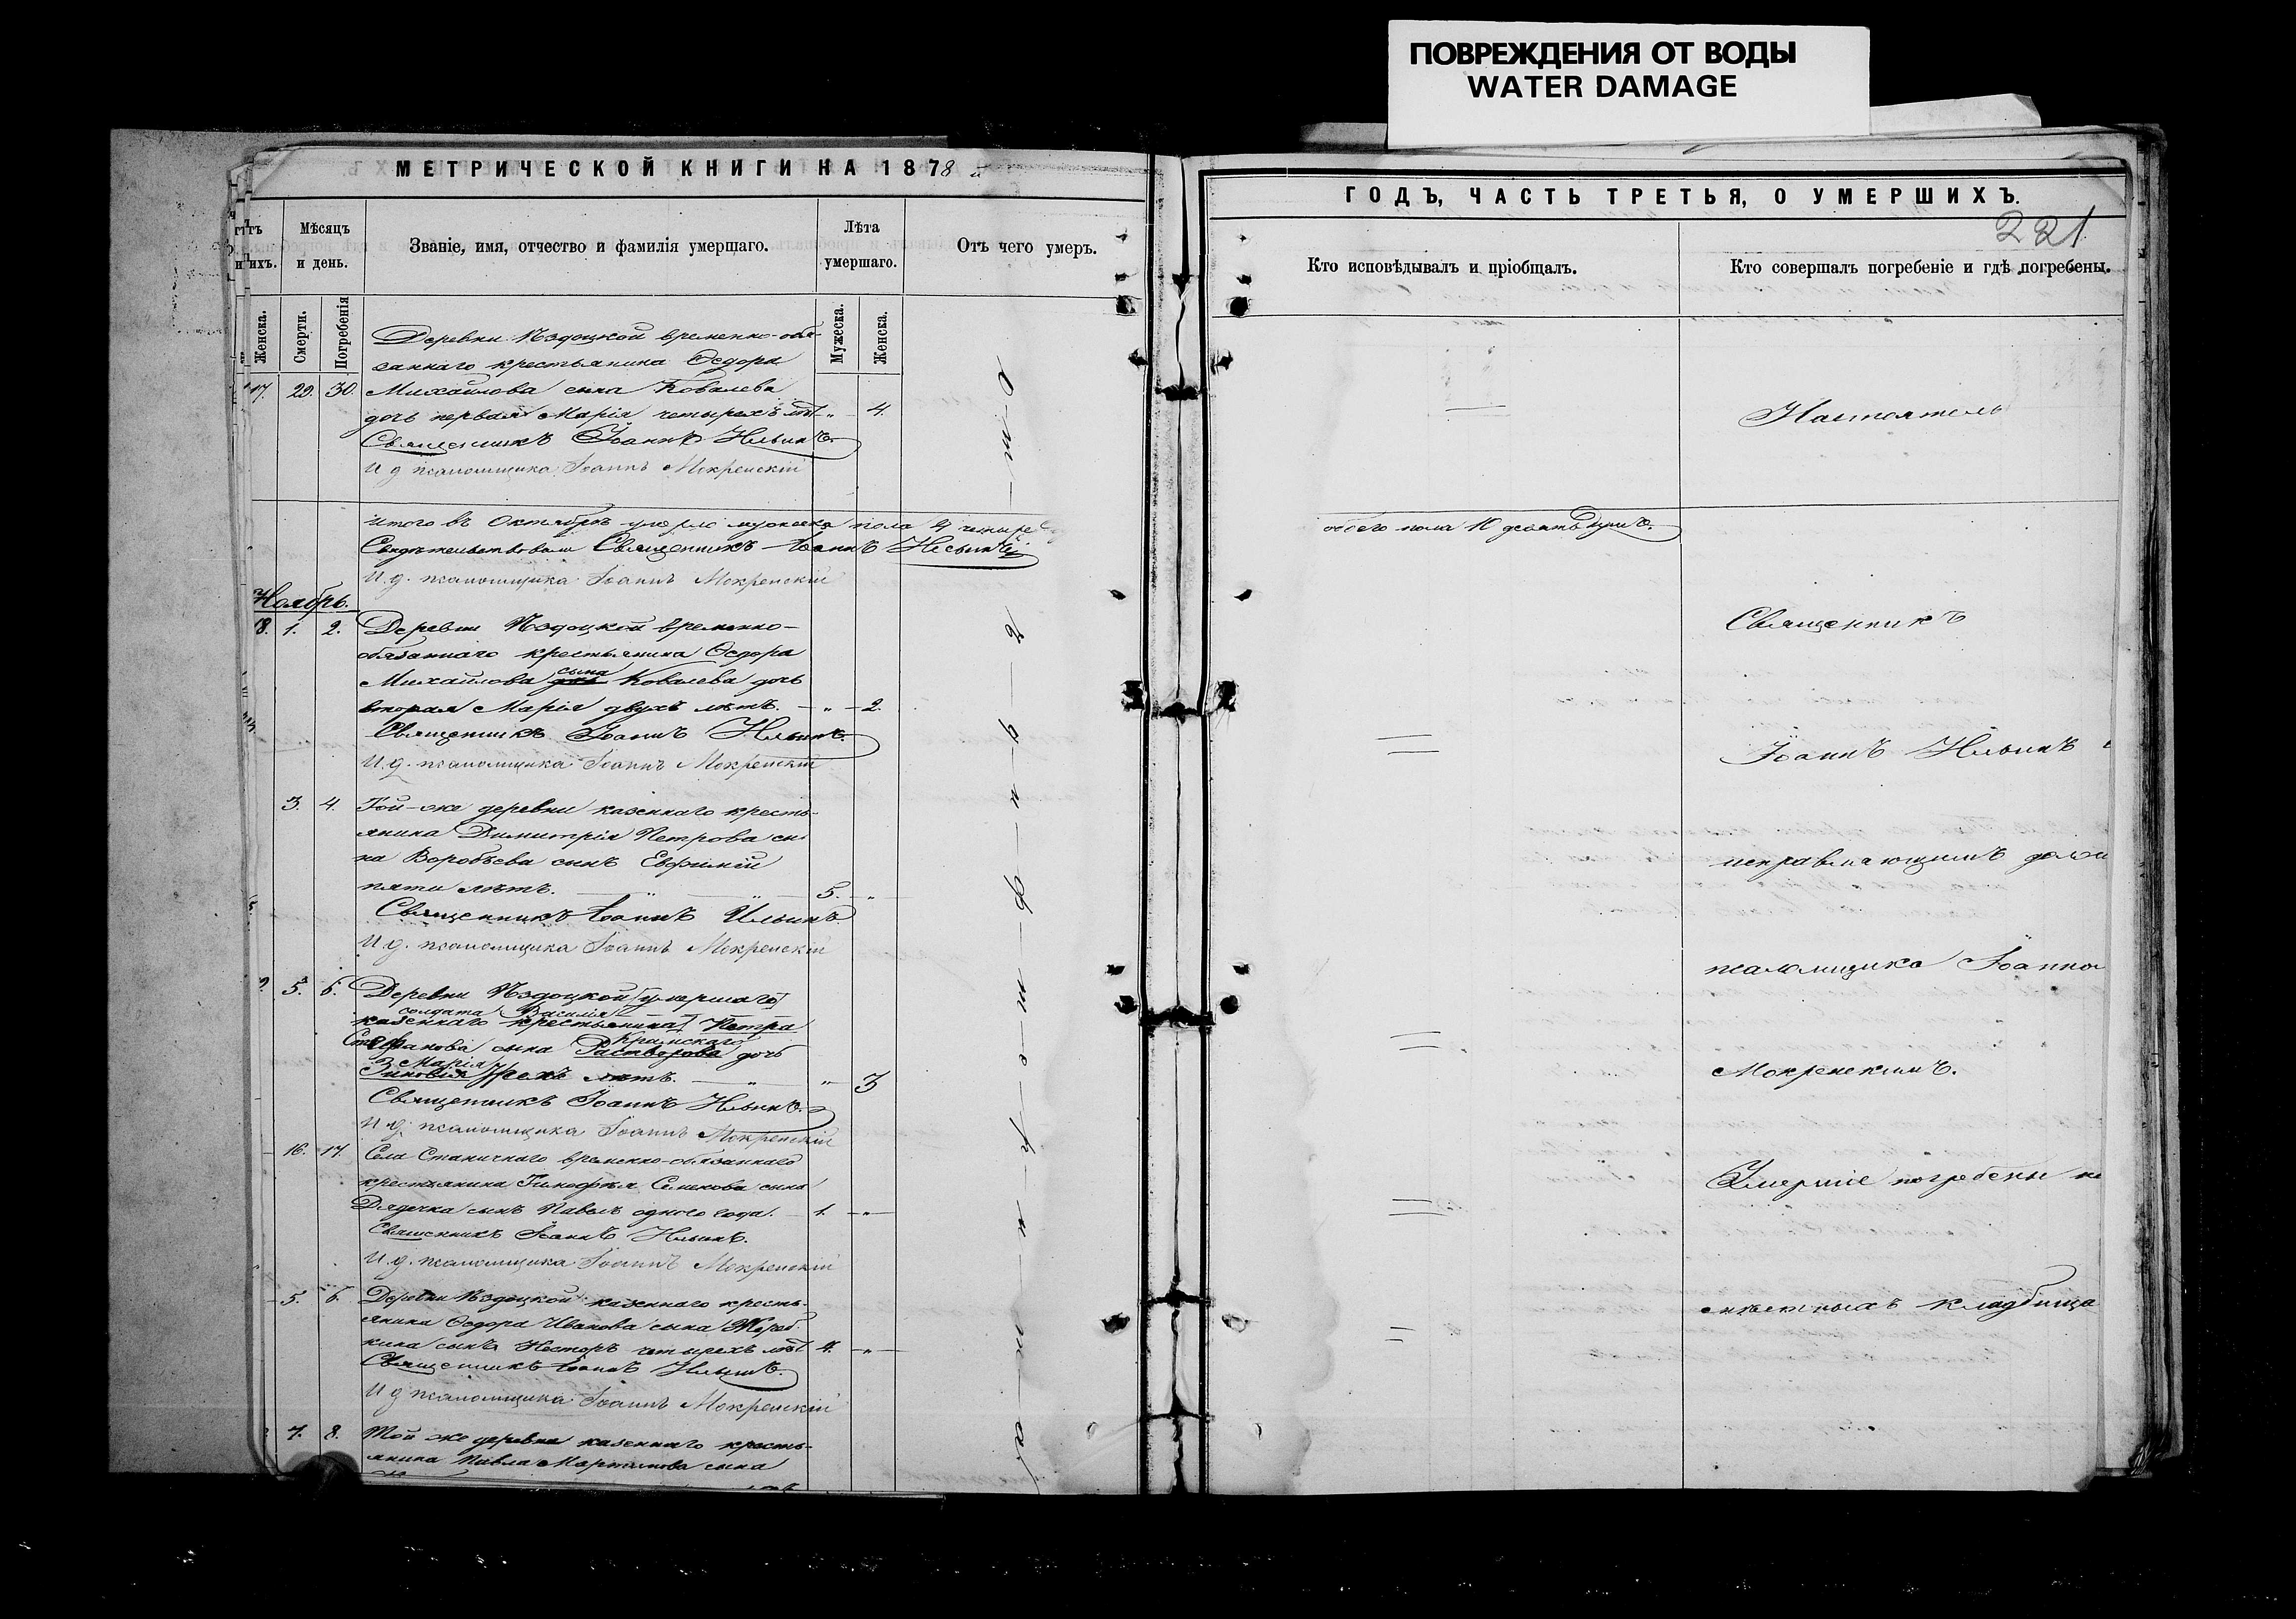 ПОВРЕЖДЕНИЯ ОТ ВОДЫ
WATER DAMAGE
МЕТРИЧЕСКОЙ КНИГИ НА 1878
Мѣсяцъ и день.
Званіе, имя, отчество и фамилія умершаго.
Лѣта умершаго.
Отъ чего умеръ.
Женска.
Смерти.
Погребенія
Мужеска.
Женска.
Деревни временно-обя-
заннаго крестьянина Ѳедора
17. 29. 30. Михайлова сына Ковалева
дочь первая Марія четырехъ лѣтъ „ 4.
Священникъ Іоаннъ Ильинъ.
И д псаломщика Іоаннъ Мокренскій
Итого въ Октябрѣ умерло мужеска пола 4 четыре
Свидѣтельствовали Священникъ Іоаннъ Ильинъ
И. д. псаломщика Іоаннъ Мокренскій
Ноябрь.
18. 1. 2. Деревни временно-
обязаннаго крестьянина Ѳедора
Михайлова сына Ковалева дочь
вторая Марія двухъ лѣтъ. „ 2.
Священникъ Іоаннъ Ильинъ.
И. д. псаломщика Іоаннъ Мокренскій
3. 4. Той-же деревни казеннаго кресть-
янина Димитрія Петрова сы-
на Воробьева сынъ Евфимій
пяти лѣтъ. 5. „
Священникъ Іоаннъ Ильинъ
И д. псаломщика Іоаннъ Мокренскій
5. 6. Деревни умершаго
солдата Василія
казеннаго крестьянина Петра
Стефанова сына Крымскаго Растворова дочь
Марія
Зиновія трехъ лѣтъ. „ „ 3
Священникъ Іоаннъ Ильинъ.
И д. псаломщика Іоаннъ Мокренскій
16. 17. Села Станичнаго временно-обязаннаго
крестьянина Тимофея Семенова сына
Дядечка сынъ Павелъ одного года. 1. „
Священникъ Іоаннъ Ильинъ.
И. д. псаломщика Іоаннъ Мокренскій
5. 6. Деревни казеннаго кресть-
янина Ѳедора Иванова сына
сынъ Несторъ четырехъ лѣтъ 4. „
Священникъ Іоаннъ Ильинъ.
И д псаломщика Іоаннъ Мокренскій
7. 8. Той же деревни казеннаго кресть-
янина Павла Мартынова сына
ГОДЪ, ЧАСТЬ ТРЕТЬЯ, О УМЕРШИХЪ.
221
Кто исповѣдывалъ и пріобщалъ.
Кто совершалъ погребеніе и гдѣ погребены.
Настоятель
обоего пола 10 десять душъ.
Священникъ
Іоаннъ Ильинъ
исправляющимъ долж
псаломщика Іоанно
Мокренскимъ.
Умершіе погребены
кладбища